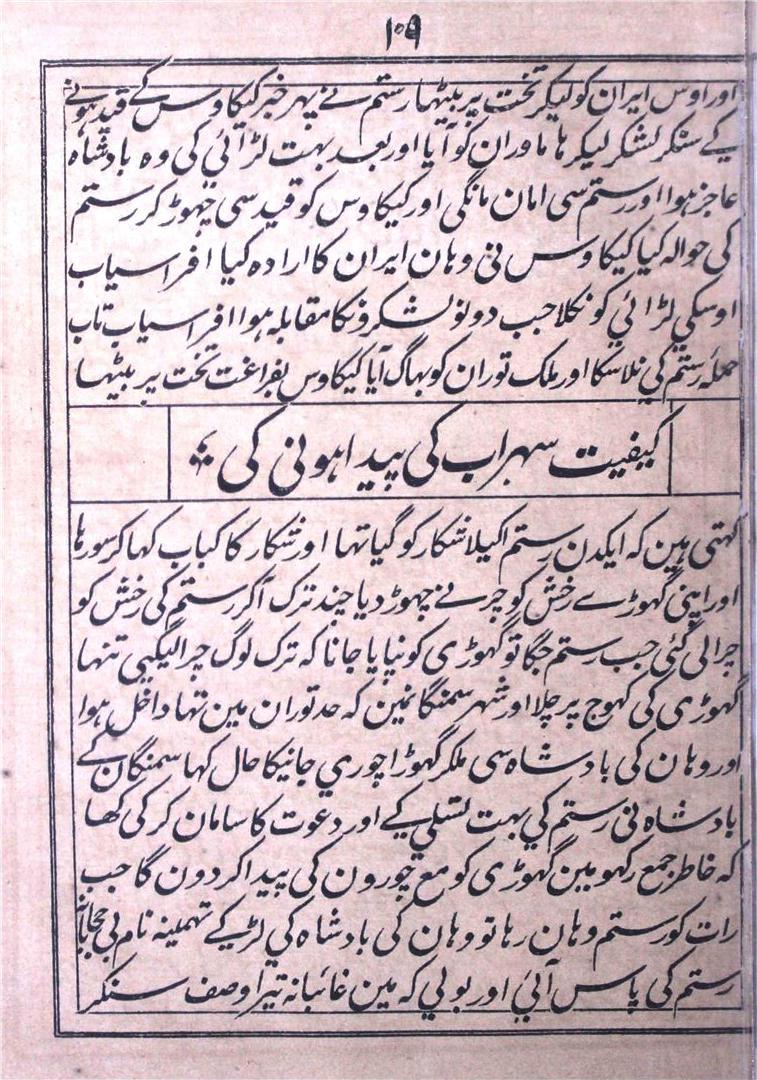 ۱۰۹
اور اوس ایران کو لیکر تخت پر بیٹھا رستم نے پہر خبر کیکاوس کے قید ہونے
کے سنکر لشکر لیکر ہاماوران کو آیا اور بعد بہت لڑائی کی وہ بادشاہ
عاجز ہوا اور رستم سی امان مانگی اور کیکاوس کو قید سی چھوڑ کر رستم
کی حوالہ کیا کیکاوس نی وہان ایران کا ارادہ کیا افراسیاب
اوسکی لڑائی کو نکلا جب دونو لشکرونکا مقابلہ ہوا افراسیاب تاب
حملہ رستم کی نلاسکا اور ملک توران کو بھاگ آیا کیکاوس بفراغت تخت پر بیٹھا
کیفیت سہراب کی پیدا ہونی کی
کہتی ہین کہ ایکدن رستم اکیلا شکار کو گیا تہا اور شکار کا کباب کہا کر سو رہا
اور اپنی گھوڑے رخش کو چرنے چھوڑ دیا چند ترک آکر رستم کی رخش کو
چرا لی گئی جب رستم جگا تو گھوڑی کو نپایا جانا کہ ترک لوگ چرا لیگیی تنہا
گھوڑی کی کھوج پر چلا اور شہر سمنگانمین کہ حد توران مین تھا داخل ہوا
اور وہان کی بادشاہ سی ملکر گھوڑا چوری جانیکا حال کہا سمنگان کے
بادشاہ نی رستم کی بہت تسلی کے اور دعوت کا سامان کر کی کہا
کہ خاطر جمع رکھو مین گھوڑی کو مع چورون کی پیدا کر دون گا جب
رات کو رستم وہان رہا تو وہان کی بادشاہ کی لڑکے تہمینہ نام بی حجابانہ
رستم کی پاس آئی اور بولی کہ مین غائبانہ تیرا وصف سنکر